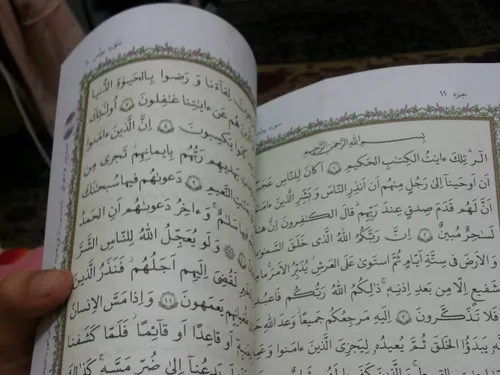 جزء ١١
بِسْمِ اللَّهِ الرَّحْمَنِ الرَّحِيمِ
الٓر تِلْكَ ءَايَٰتُ الْكِتَٰبِ الْحَكِيمِ ١ أَكَانَ لِلنَّاسِ
أَنْ أَوْحَيْنَا إِلَىٰ رَجُلٍ مِنْهُمْ أَنْ أَنْذِرِ النَّاسَ وَبَشِّرِ الَّذِينَ ءَامَنُوا
أَنَّ لَهُمْ قَدَمَ صِدْقٍ عِنْدَ رَبِّهِمْ قَالَ الْكَٰفِرُونَ إِنَّ
لَسَٰحِرٌ مُبِينٌ ٢ إِنَّ رَبَّكُمُ اللَّهُ الَّذِى خَلَقَ
وَالْأَرْضَ فِى سِتَّةِ أَيَّامٍ ثُمَّ اسْتَوَىٰ عَلَى الْعَرْشِ يُدَبِّرُ الْأَمْرَ
شَفِيعٍ إِلَّا مِنْ بَعْدِ إِذْنِهِ ذَٰلِكُمُ اللَّهُ رَبُّكُمْ
تَذَكَّرُونَ ٣ إِلَيْهِ مَرْجِعُكُمْ جَمِيعًا وَعْدَ اللَّهِ
يَبْدَؤُا الْخَلْقَ ثُمَّ يُعِيدُهُ لِيَجْزِىَ الَّذِينَ ءَامَنُوا
سورة يونس
لِقَاءَنَا وَرَضُوا بِالْحَيَوٰةِ الدُّنْيَا
هُمْ عَنْ ءَايَٰتِنَا غَٰفِلُونَ ٧ أُولَٰئِكَ
كَانُوا يَكْسِبُونَ ٨ إِنَّ الَّذِينَ ءَامَنُوا
رَبُّهُمْ بِإِيمَانِهِمْ تَجْرِى مِنْ
النَّعِيمِ ٩ دَعْوَىٰهُمْ فِيهَا سُبْحَٰنَكَ
سَلَٰمٌ وَءَاخِرُ دَعْوَىٰهُمْ أَنِ الْحَمْدُ
وَلَوْ يُعَجِّلُ اللَّهُ لِلنَّاسِ الشَّرَّ
لَقُضِىَ إِلَيْهِمْ أَجَلُهُمْ فَنَذَرُ الَّذِينَ
يَعْمَهُونَ ١١ وَإِذَا مَسَّ الْإِنْسَٰنَ
أَوْ قَاعِدًا أَوْ قَائِمًا فَلَمَّا كَشَفْنَا
يَدْعُنَا إِلَىٰ ضُرٍّ مَسَّهُ كَذَٰلِكَ